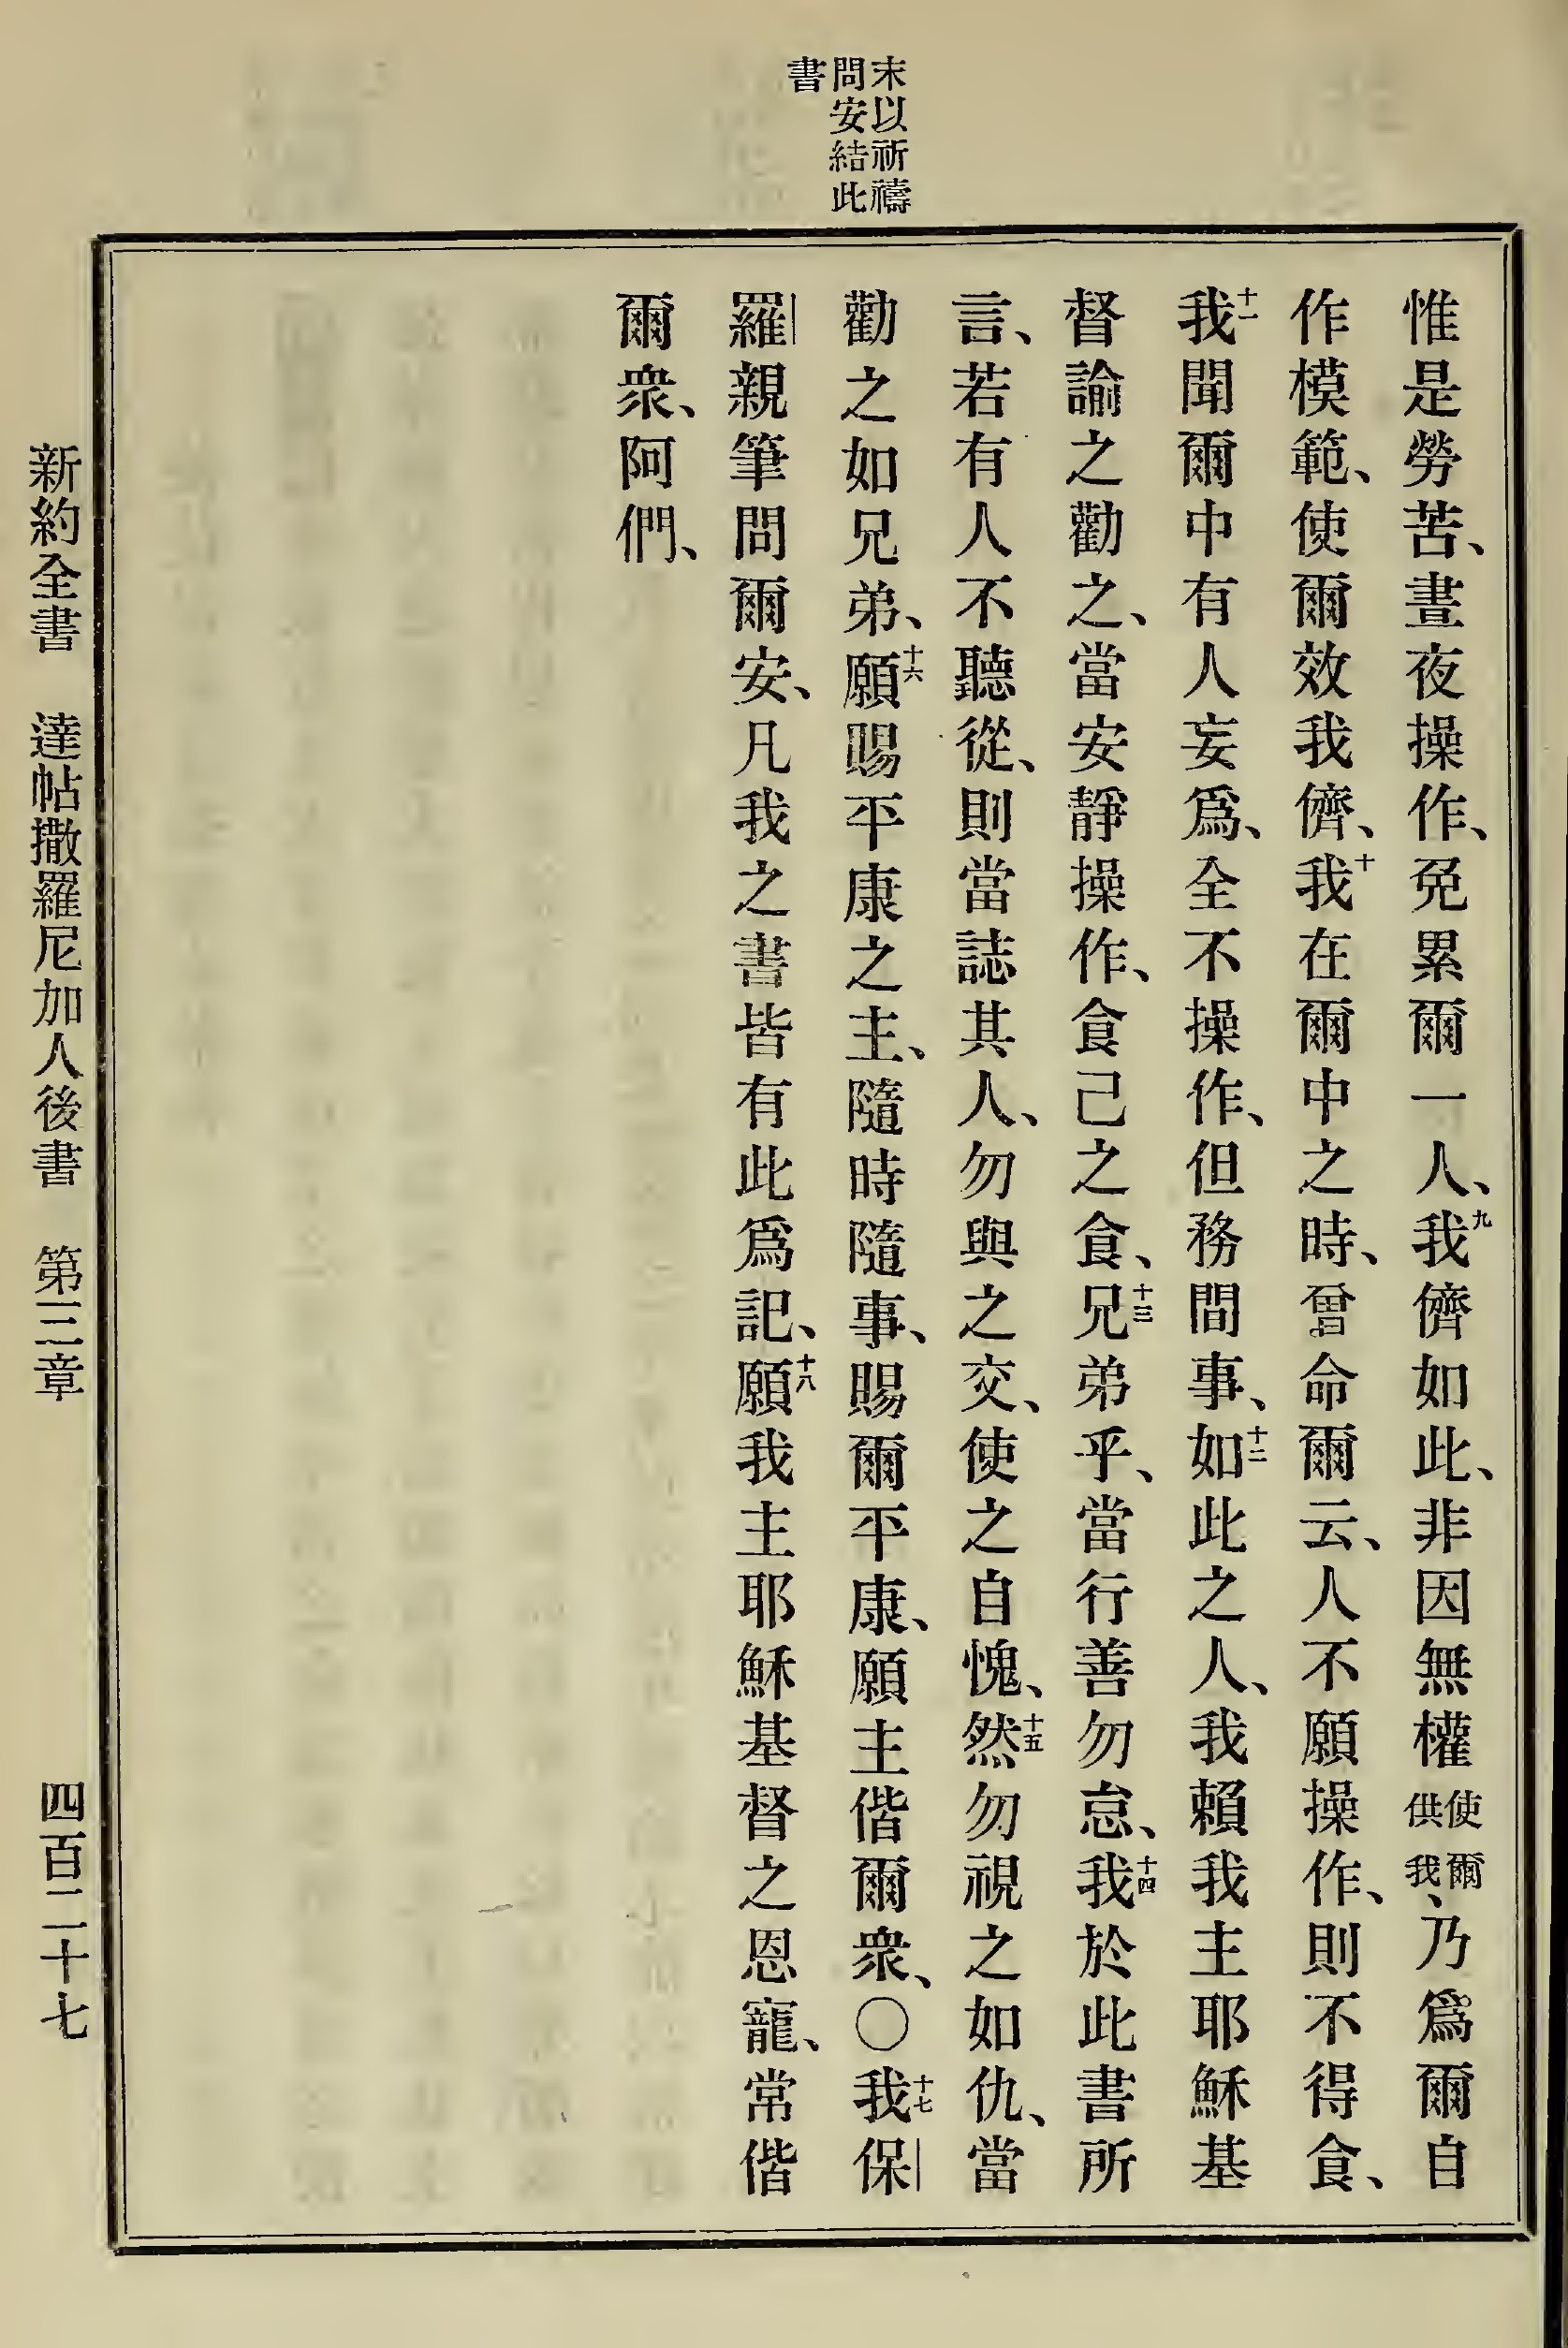 末以祈禱
問安結此
書
惟是勞苦、晝夜操作、免累爾一人、九我儕如此、非因無權使爾供我、乃爲爾自
作模範、使爾效我儕、十我在爾中之時、曾命爾云、人不願操作、則不得食、
十一我聞爾中有人妄爲、全不操作、但務閒事、十二如此之人、我賴我主耶穌基
督諭之勸之、當安靜操作、食己之食、十三兄弟乎、當行善勿怠、十四我於此書所
言、若有人不聽從、則當誌其人、勿與之交、使之自愧、十五然勿視之如仇、當
勸之如兄弟、十六願賜平康之主、隨時隨事、賜爾平康、願主偕爾衆、○十七我保
羅親筆問爾安、凡我之書皆有此爲記、十八願我主耶穌基督之恩寵、常偕
爾衆、阿們、
新約全書 達帖撒羅尼加人後書 第三章 四百二十七